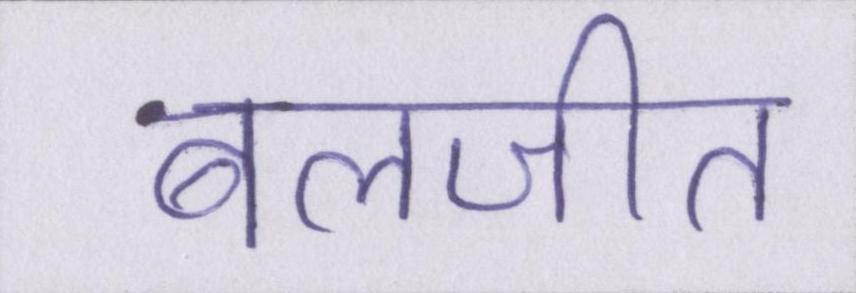 बलजीत